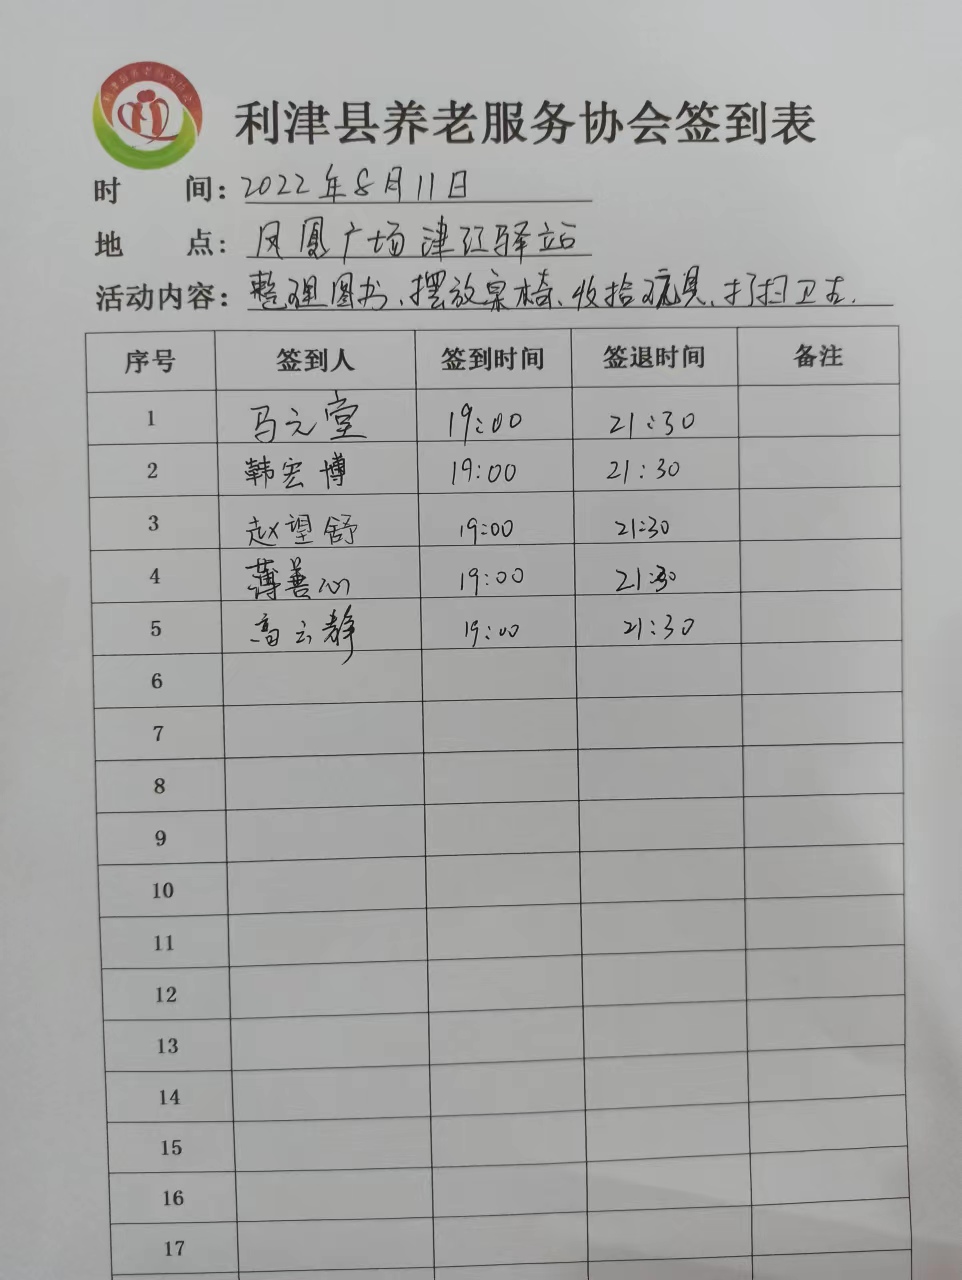 利津县养老服务协会
利津县养老服务协会签到表
时 间: 2022年8月11日
地 点: 凤凰广场津江驿站
活动内容: 整理图书、摆放桌椅、收拾玩具、打扫卫生.
序号 签到人 签到时间 签退时间 备注
1 马元堂 19:00 21:30
2 韩宏博 19:00 21:30
3 赵望舒 19:00 21:30
4 薄善心 19:00 21:30
5 高云静 19:00 21:30
6
7
8
9
10
11
12
13
14
15
16
17